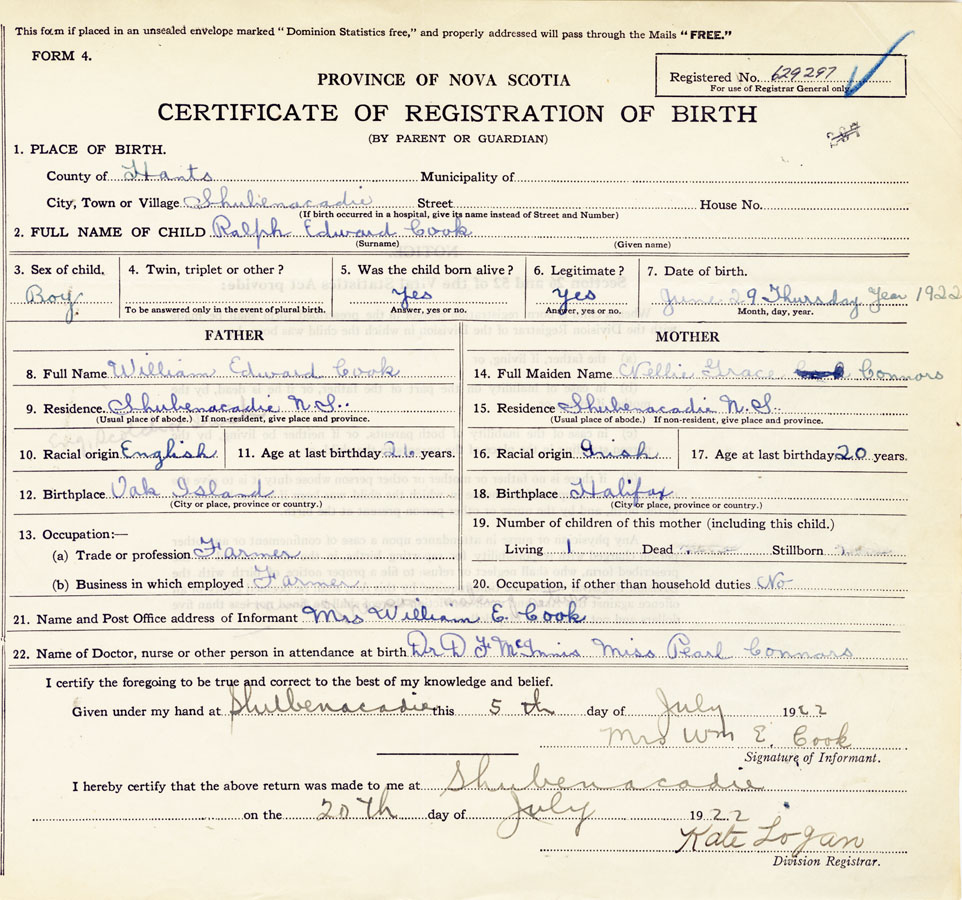 This form if placed in an unsealed envelope marked "Dominion Statistics free," and properly addressed will pass through the Mails "FREE."
FORM 4.
Registered No. 629297
For use of Registrar General only.
PROVINCE OF NOVA SCOTIA
CERTIFICATE OF REGISTRATION OF BIRTH
(BY PARENT OR GUARDIAN)
1. PLACE OF BIRTH.
County of Hants Municipality of
City, Town or Village Shubenacadie Street House No.
(If birth occurred in a hospital, give its name instead of Street and Number)
2. FULL NAME OF CHILD Ralph Edward Cook
(Surname) (Given name)
3. Sex of child. 4. Twin, triplet or other? 5. Was the child born alive? 6. Legitimate? 7. Date of birth.
Boy Yes Yes June 29 Thursday Year 1922
To be answered only in the event of plural birth. Answer, yes or no. Answer, yes or no. Month, day, year.
FATHER MOTHER
8. Full Name William Edward Cook 14. Full Maiden Name Nellie Grace Connors
9. Residence Shubenacadie N.S. 15. Residence Shubenacadie N.S.
(Usual place of abode.) If non-resident, give place and province. (Usual place of abode.) If non-resident, give place and province.
10. Racial origin English 11. Age at last birthday 26 years. 16. Racial origin Irish 17. Age at last birthday 20 years.
12. Birthplace Oak Island 18. Birthplace Halifax
(City or place, province or country.) (City or place, province or country.)
13. Occupation:— 19. Number of children of this mother (including this child.)
(a) Trade or profession Farmer Living 1. Dead Stillborn
(b) Business in which employed Farmer 20. Occupation, if other than household duties No
21. Name and Post Office address of Informant Mrs William E. Cook
22. Name of Doctor, nurse or other person in attendance at birth Dr D F McInnis Miss Pearl Connors
I certify the foregoing to be true and correct to the best of my knowledge and belief.
Given under my hand at Shulbenacadie this 5th day of July 1922
Mrs Wm E. Cook
Signature of Informant.
I hereby certify that the above return was made to me at Shubenacadie
on the 20th day of July 1922
Kate Logan
Division Registrar.